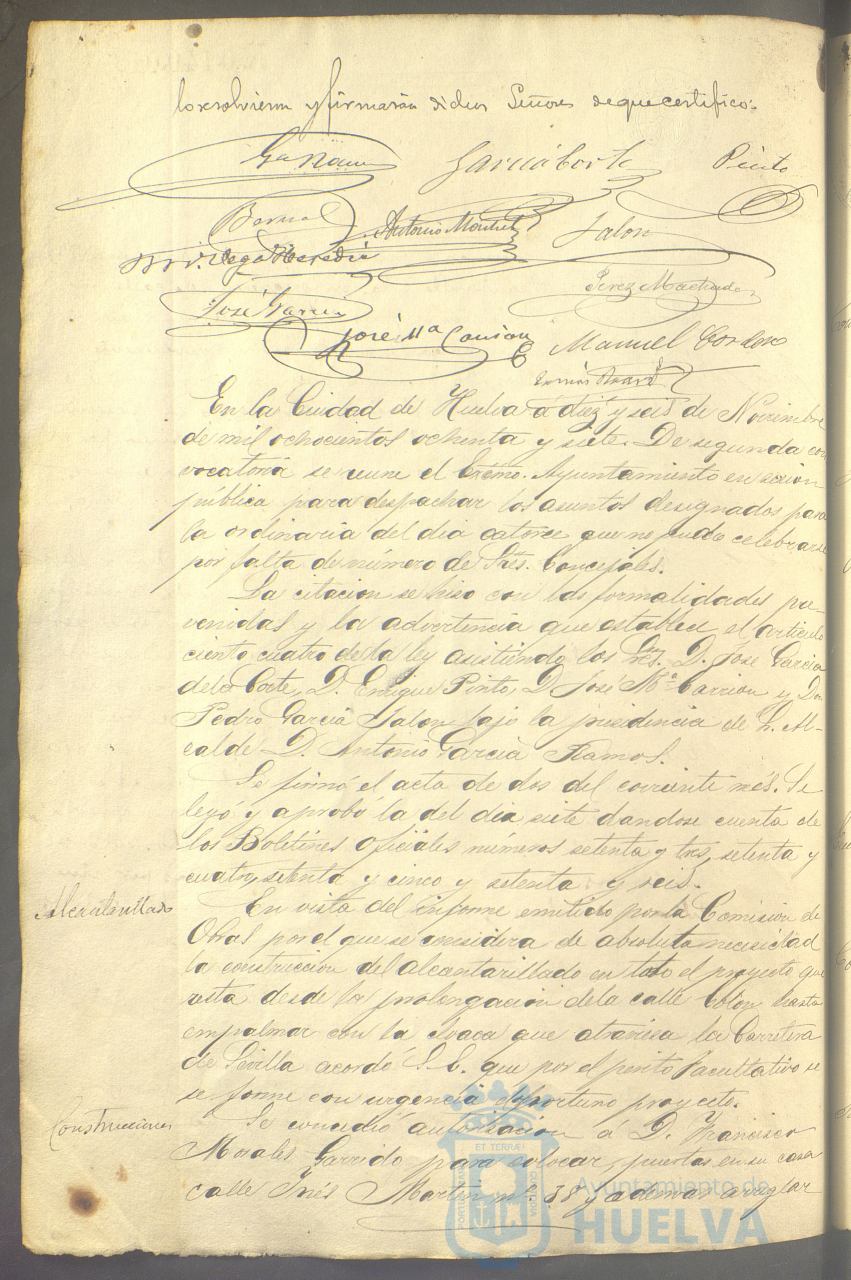 lo resolvieron y firmaran dichos Señores de que certifico.
Garcia Corte Pinto
Bernal Antonio Jalon
Vega Heredia
Perez Machado
José Garcia
José Mª Carrion
Manuel Cordero
En la Ciudad de Huelva á diez y seis de Noviembre
de mil ochocientos ochenta y siete. De segunda con
vocatoria se reune el Excmo. Ayuntamiento en sesion
pública para despachar los asuntos designados para
la ordinaria del dia catorce que no pudo celebrarse
por falta de número de Sres. Concejales.
La citacion se hiso con las formalidades pre-
venidas y la advertencia que establece el articulo
ciento cuatro de la ley asistiendo los Sres. D. José Garcia
de la Corte, D. Enrique Pinto, D. José Mª Carrion y Don
Pedro Garcia Jalon bajo la presidencia de Sr. Al-
calde D. Antonio Garcia Ramos.
Se firmó el acta de dos del corriente mes. Se
leyó y aprobó la del dia siete dandose cuenta de
los Boletines oficiales números setenta y tres, setenta y
cuatro, setenta y cinco y setenta y seis.
Alcantarillado
En vista del informe emitido por la Comision de
Obras por el que se considera de absoluta necesidad
la construccion del alcantarillado en todo el proyecto que
resta desde la prolongacion de la calle Colon hasta
empalmar con la cloaca que atraviesa la Carretera
de Sevilla acordó S.E. que por el perito facultativo se
se forme con urgencia el oportuno proyecto.
Construcciones
Se concedió autorizacion á D. Francisco
Morales Garrido para colocar puertas en su casa
calle Inés Martin nº 38 y ademas arreglar
ET TERRAE
Ayuntamiento de
HUELVA